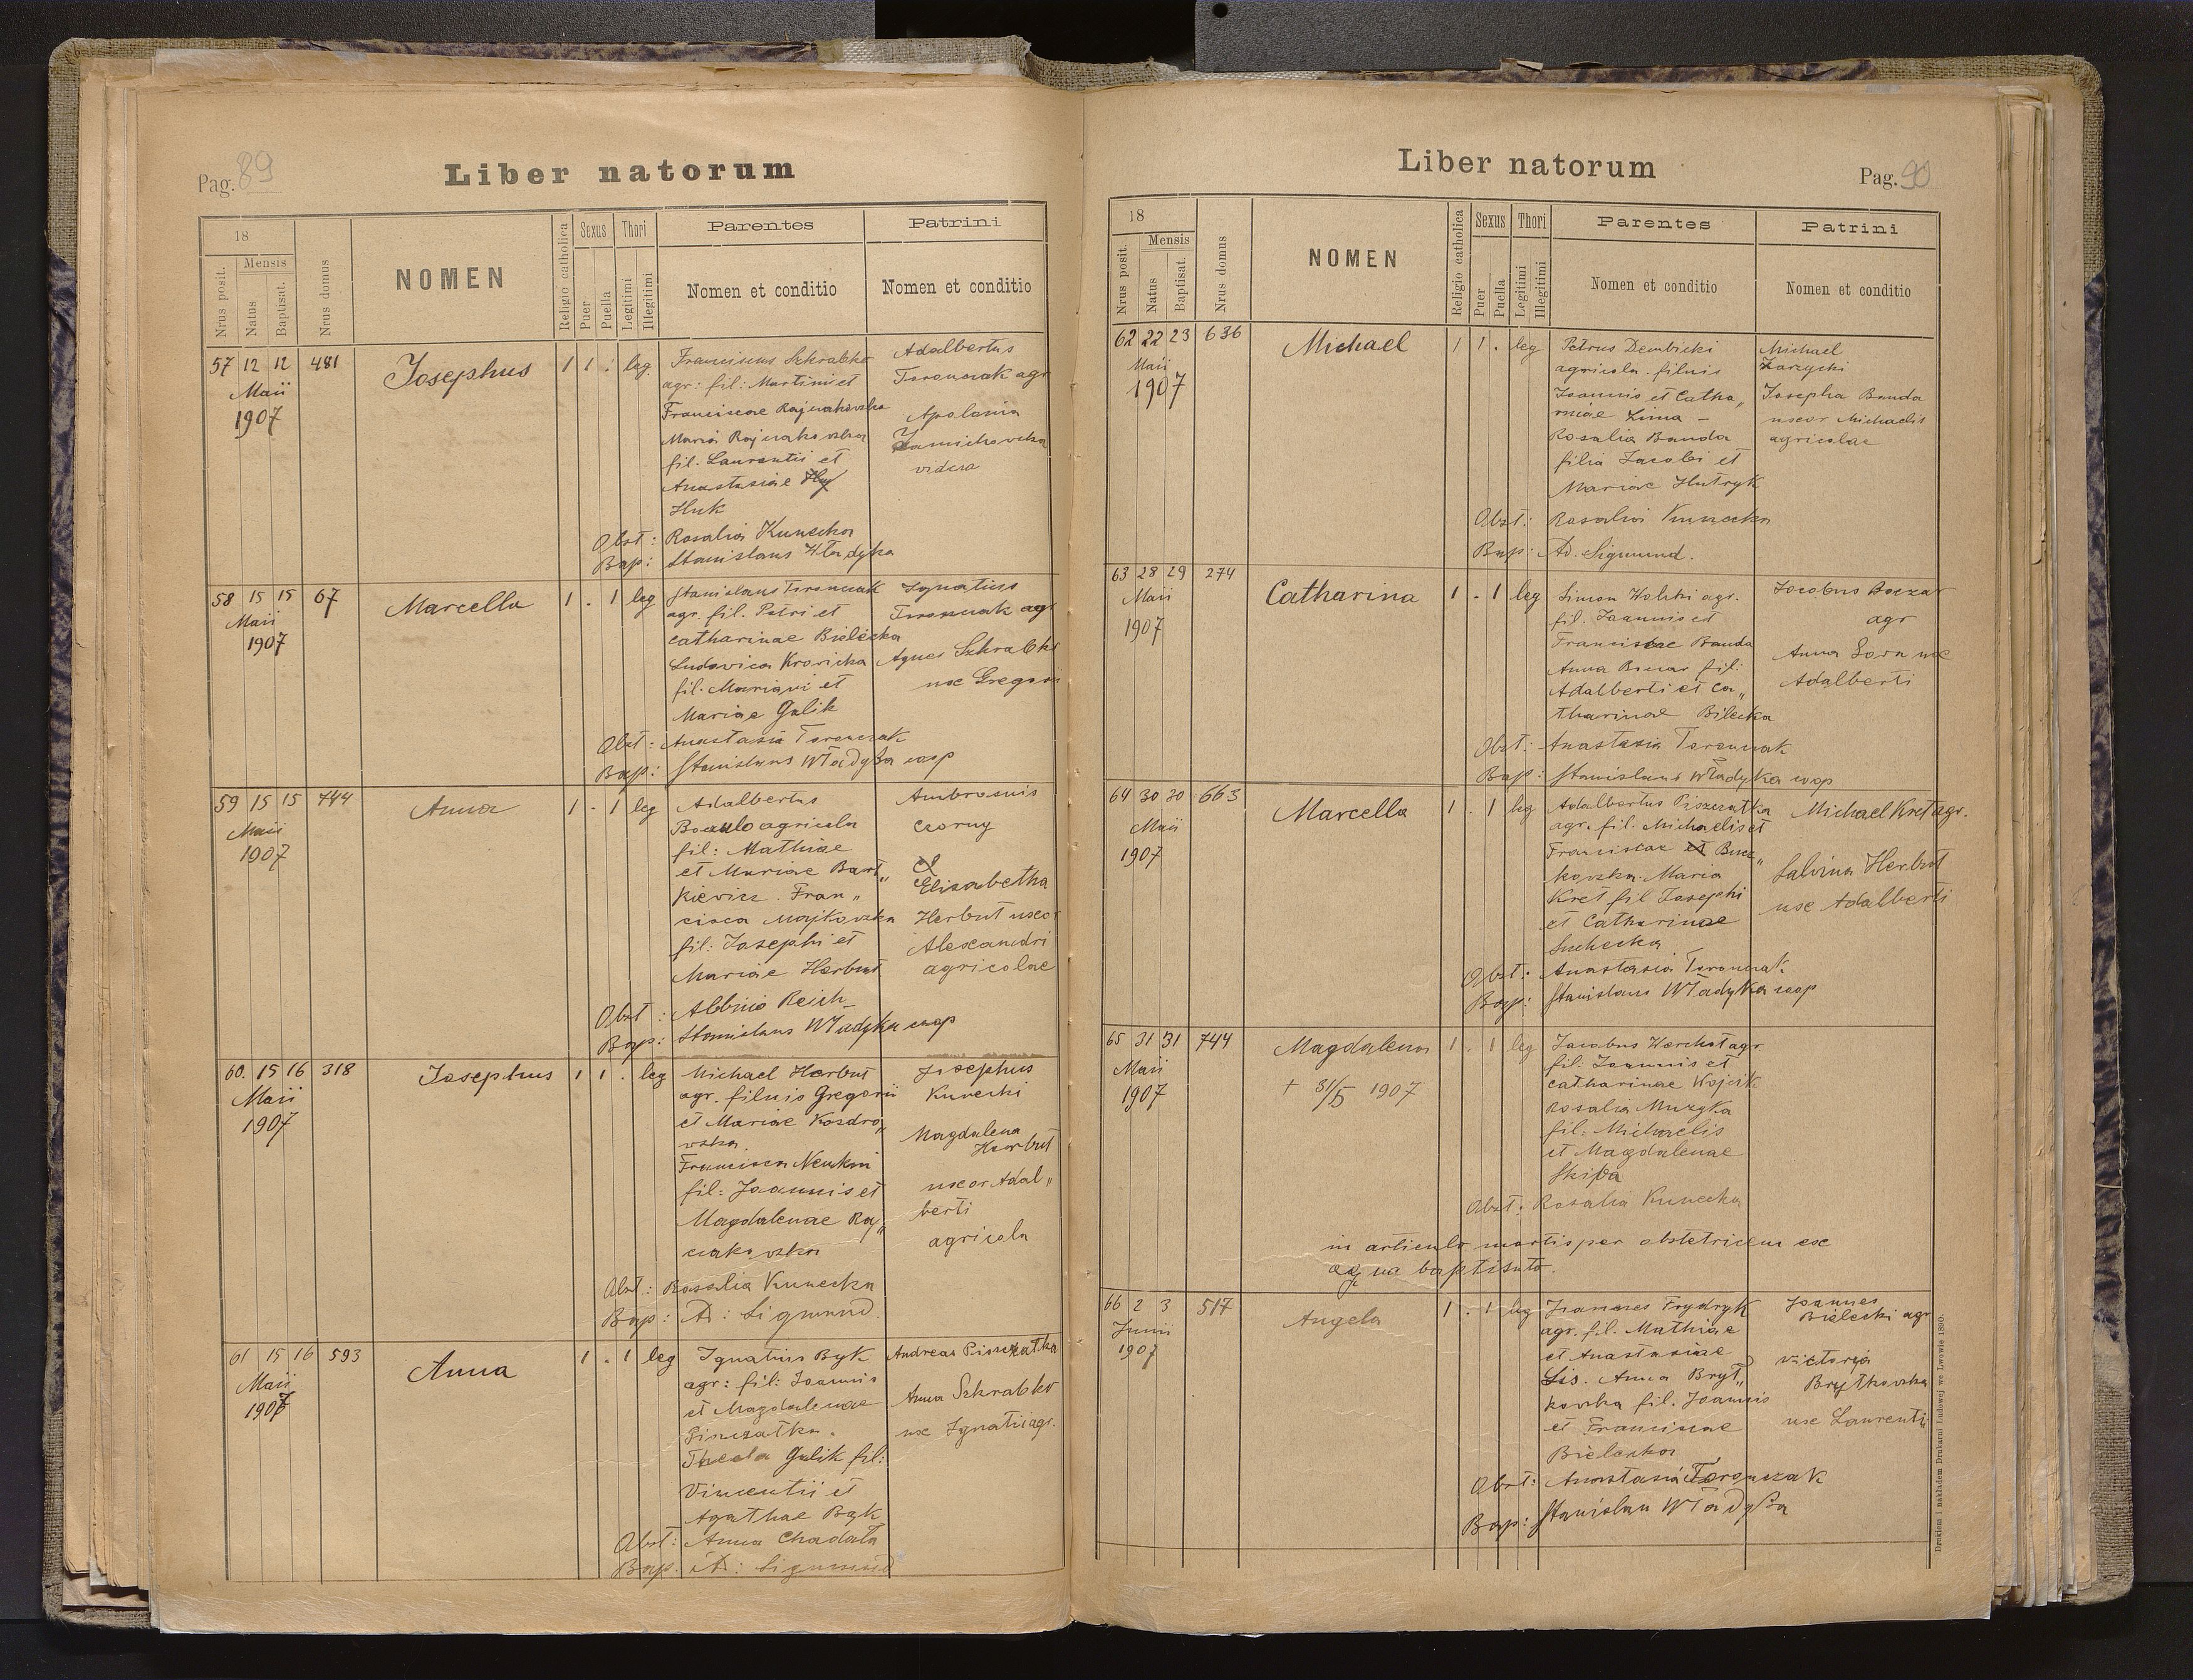 Pag. 89
Liber natorum
18
Nrus posit.
Mensis
Natus
Baptisat.
Nrus domus
NOMEN
Religio catholica
Sexus
Puer
Puella
Thori
Legitimi
Illegitimi
Parentes
Nomen et conditio
Patrini
Nomen et conditio
57 12 12 481
Maii
1907
Josephus
1 1 . leg.
Franciscus Szkrabko
agr: fil: Martini et
Franciscae
Maria
fil. Laurentii et
Anastasiae
Huk
Adalbertus
Toronczak agr
Apolonia
vidua
Obst: Rosalia Kunecka
Bap: Stanislaus Władyka
58 15 15 67
Maii
1907
Marcella
1 . 1 leg
Stanislaus Toronczak
agr. fil. Petri et
Catharinae Bielecka
Ludovica Krovicka
fil. Mariani et
Mariae Gulik
Ignatius
Toronczak agr
Agnes Szkrabko
ux Gregorii
Obst: Anastasia Toronczak
Bap: Stanislaus Władyka coop
59 15 15 744
Maii
1907
Anna
1 . 1 leg
Adalbertus
agricola
fil: Mathiae
et Mariae Bart„
kievicz. Fran„
cisca Majkovska
fil: Josephi et
Mariae Herbut
Ambrosius
Czorny
Elisabetha
Herbut uxor
Alexandri
agricolae
Obst: Albina Reich
Bap: Stanislaus Władyka coop
60. 15 16 318
Maii
1907
Josephus
1 1 . leg
Michael Herbut
agr. filius Gregorii
et Mariae Kosdro„
vska.
Francisca
fil: Joannis et
Magdalenae Raj„
czakovska
Josephus
Kunecki
Magdalena
Herbut
uxor Adal„
berti
agricola
Obst: Rosalia Kunecka
Bap: Ad: Sigmund
61 15 16 593
Maii
1907
Anna
1 . 1 leg
Ignatius Byk
agr: fil: Joannis
et Magdalenae
Piszczatka.
Thecla Gulik fil:
Vincentii et
Agathae Byk
Andreas Piszczatka
Anna Szkrabko
ux Ignatii agr.
Obst: Anna Chadała
Bap. Ad: Sigmund
Liber natorum
Pag. 90
18
Nrus posit.
Mensis
Natus
Baptisat.
Nrus domus
NOMEN
Religio catholica
Sexus
Puer
Puella
Thori
Legitimi
Illegitimi
Parentes
Nomen et conditio
Patrini
Nomen et conditio
62 22 23 636
Maii
1907
Michael
1 1 . leg
Petrus Dembicki
agricola. filius
Joannis et Catha„
rinae Zima –
Rosalia Banda
filia Jacobi et
Mariae Hutryk
Michael
Zarzycki
Josepha Banda
uxor Michaelis
agricolae
Obst: Rosalia Kunecka
Bap: Ad. Sigmund.
63 28 29 274
Maii
1907
Catharina
1 . 1 leg
Simon Wolski agr.
fil. Joannis et
Franciscae Banda
Anna fil:
Adalberti et Ca„
tharinae Bilecka
Jacobus
agr
Anna ux
Adalberti
Obst: Anastasia Toronczak
Bap: Stanislaus Władyka coop
64 30 30 663
Maii
1907
Marcella
1 . 1 leg
Adalbertus Piszczatka
agr. fil. Michaelis et
Franciscae Bucz„
kovska. Maria
Kret fil Josephi
et Catharinae
Suchecka
Michael Kret agr.
Salvina Herbut
ux Adalberti
Obst: Anastasia Toronczak
Bap: Stanislaus Władyka coop
65 31 31 744
Maii
1907
Magdalena
+ 31/5 1907
1 . 1 leg
Jacobus agr
fil: Joannis et
Catharinae Wojcik
Rosalia Muzyka
fil: Michaelis
et Magdalenae
Skiba
Obst: Rosalia Kunecka
in articulo mortis per obstetricem ex
aqua baptisata.
66 2 3 517
Junii
1907
Angela
1 . 1 leg
Joannes Frydryk
agr. fil. Mathiae
et Anastasiae
Lis. Anna Bryt„
kovska fil. Joannis
et Franciscae
Bielecka
Joannes
Bielecki agr
Victoria
Brytkovska
ux Laurentii
Obst: Anastasia Toronczak
Bap: Stanislau Władyka
Drukiem i nakładem Drukarni Ludowej we Lwowie 1890.